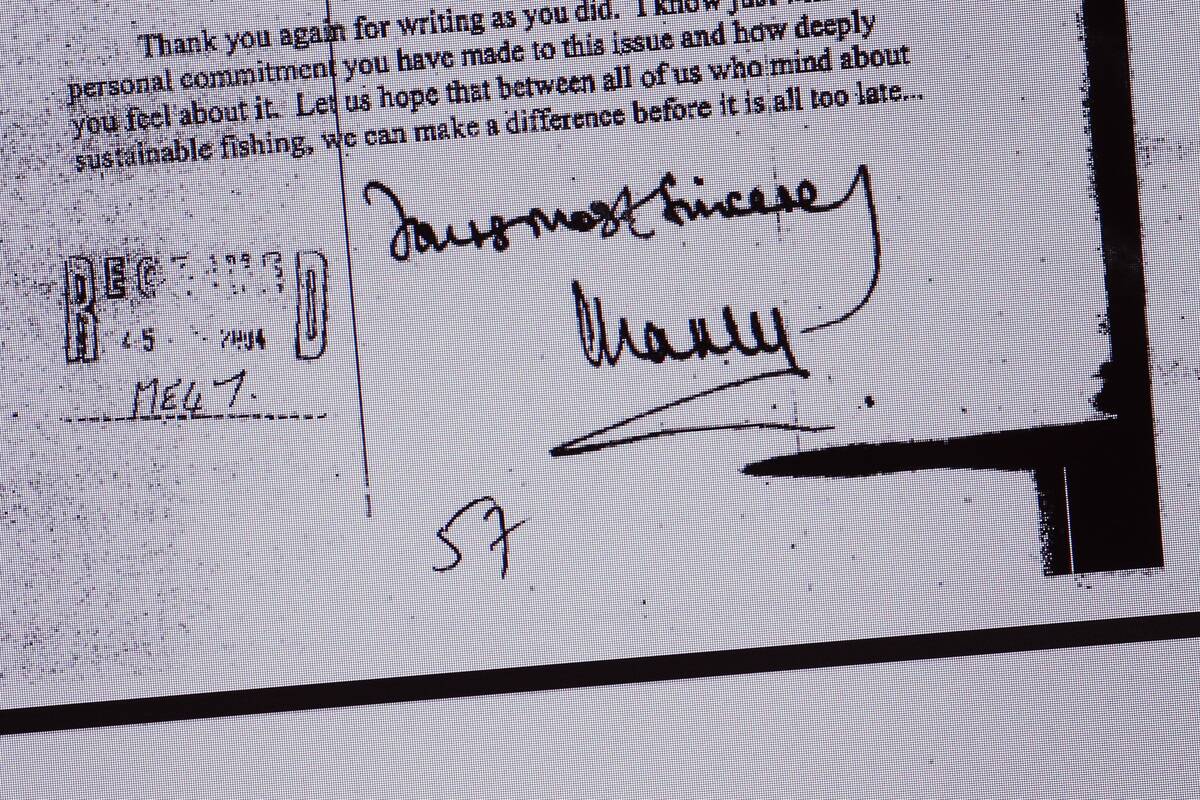 Thank you again for writing as you did. I know just
personal commitment you have made to this issue and how deeply
you feel about it. Let us hope that between all of us who mind about
sustainable fishing, we can make a difference before it is all too late...
Yours most sincerely
REC D
ME4 7.
57